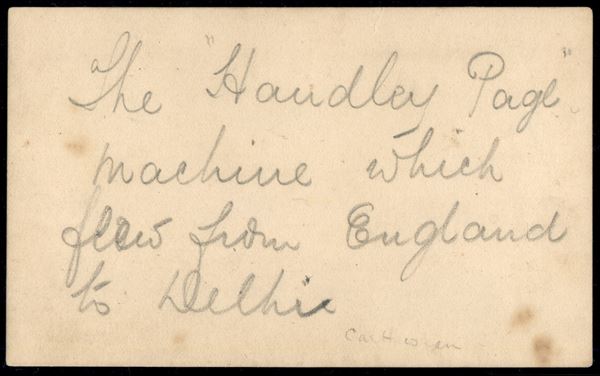 The "Handley Page"
machine which
flew from England
to Delhi